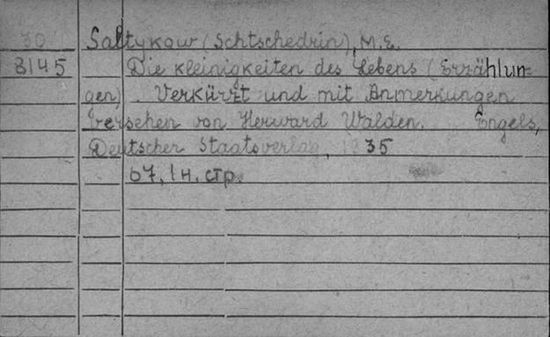 30 Saltykow (Schtschedrin), M.E.
3145 Die kleinigkeiten des Lebens (Erzählun-
gen). Verkürzt und mit Anmerkungen
versehen von Herward Walden. Engels,
Deutscher Staatsverlag, 1935
67, 1 н. стр.